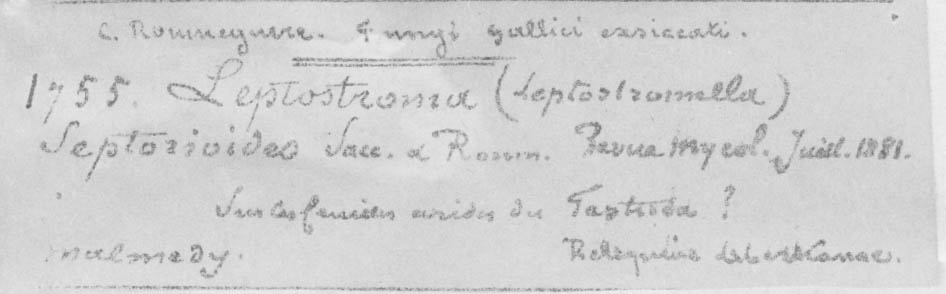 C. Roumeguere. Fungi gallici exsiccati.
1755. Leptostroma (Leptostromella)
Septorioides Sacc. & Roum. Revue Mycol. Juill. 1881.
Sur les feuilles arides du ?
Malmedy. Reliquiae Libertianae.